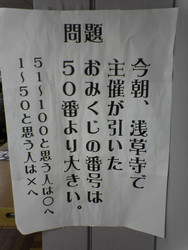 問題
今朝、浅草寺で
主催が引いた
おみくじの番号は
50番より大きい。
51〜100と思う人は○へ
1〜50と思う人は×へ